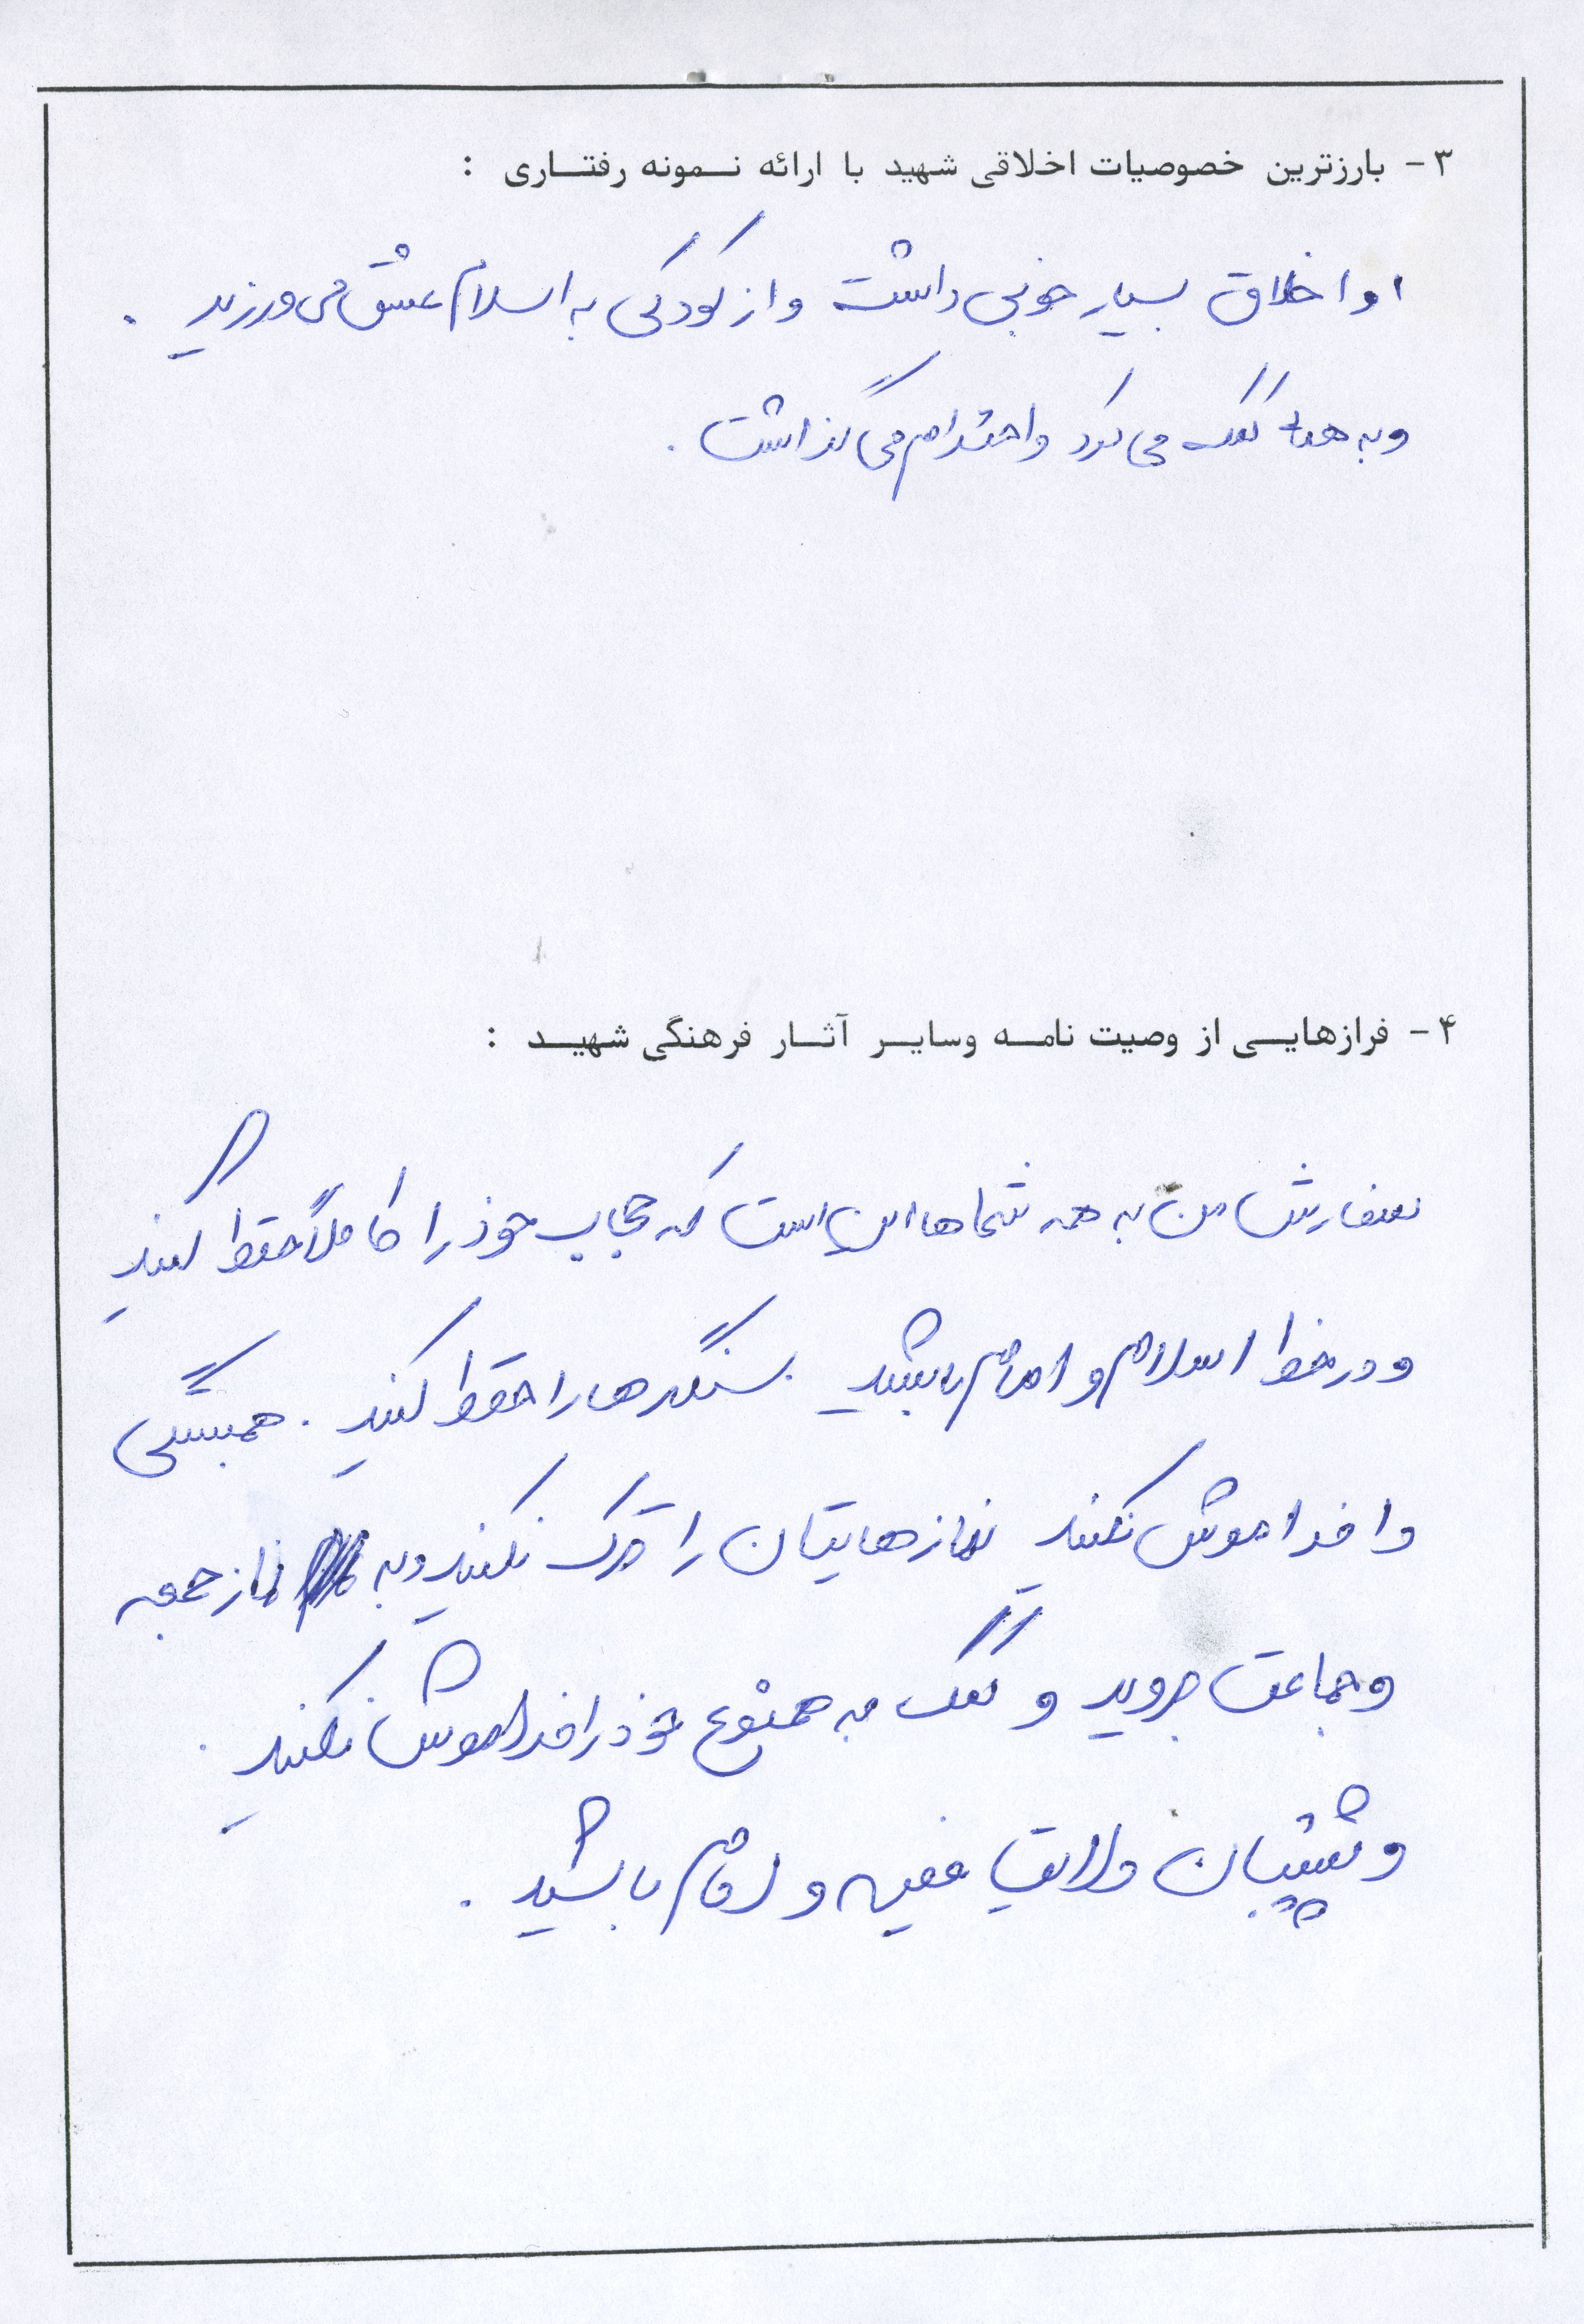 ۳- بارزترین خصوصیات اخلاقی شهید با ارائه نمونه رفتاری :
او اخلاق بسیار خوبی داشت و از کودکی به اسلام عشق می ورزید .
و به همه کمک می کرد و احترام می گذاشت .
۴- فرازهایی از وصیت نامه وسایر آثار فرهنگی شهید :
سفارش من به همه شماها این است که حجاب خود را کاملاً حفظ کنید
و در خط اسلام و امام باشید . سنگرها را حفظ کنید . همبستگی
را فراموش نکنید نمازهایتان را ترک نکنید و به نماز جمعه
و جماعت بروید و کمک به همنوع خود را فراموش نکنید .
و پشتیبان ولایت فقیه و امام باشید .